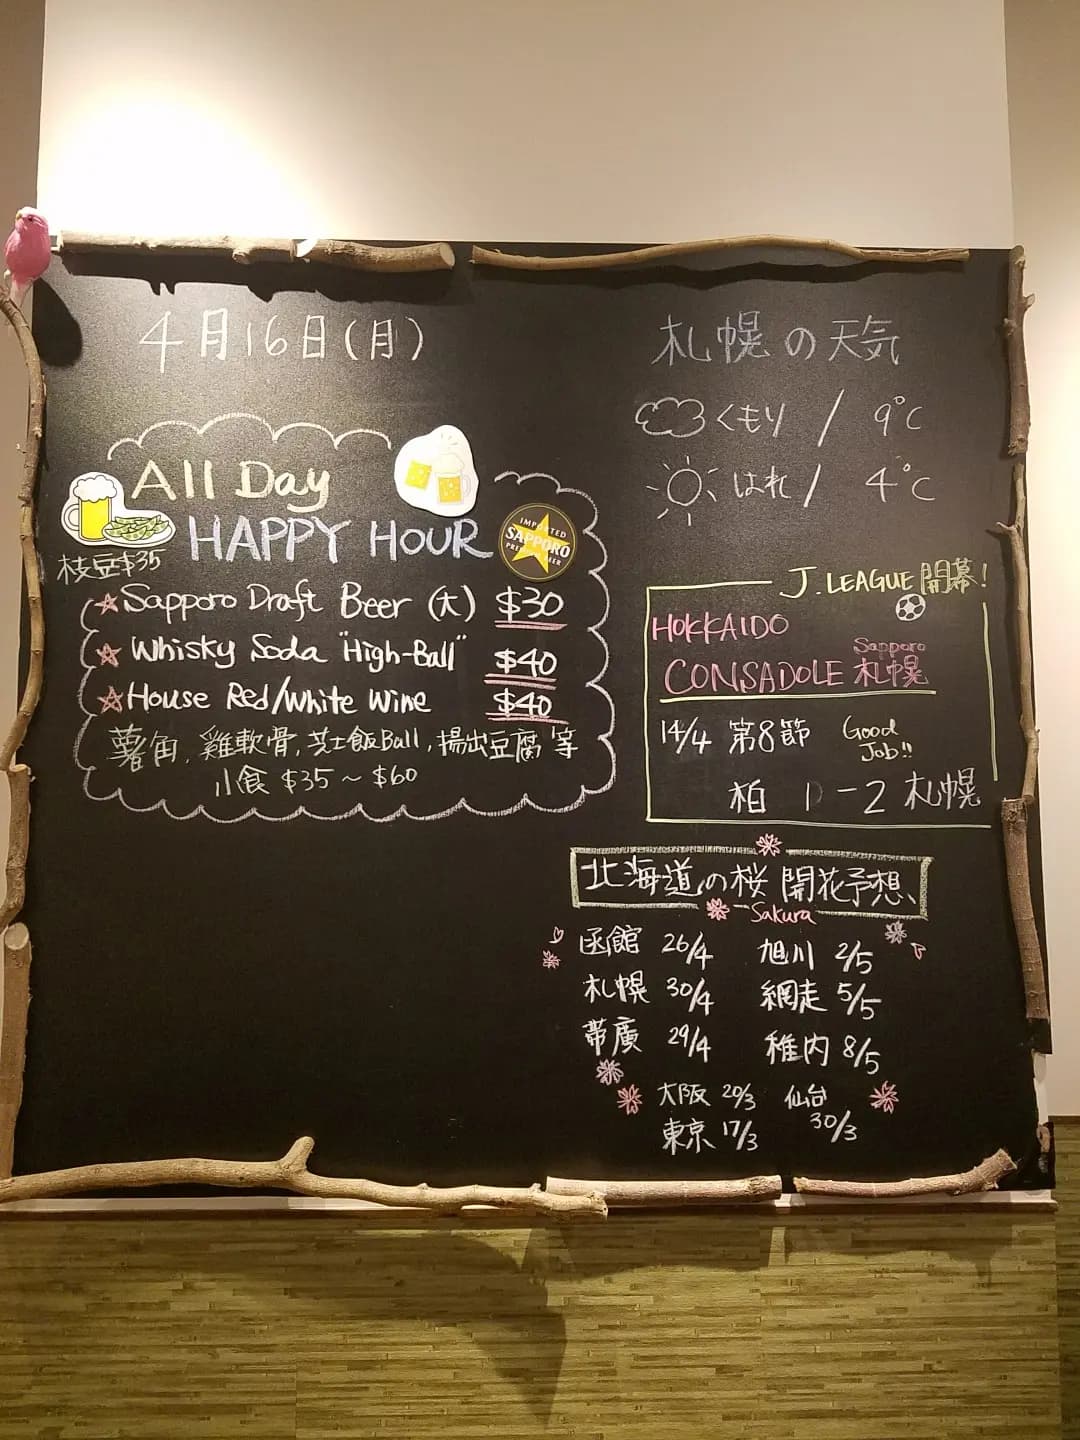 4月16日(月)
All Day
HAPPY HOUR
IMPORTED
SAPPORO
PREMIUM BEER
枝豆$35
☆Sapporo Draft Beer (大) $30
☆Whisky Soda "High-Ball" $40
☆House Red/White Wine $40
薯角, 雞軟骨, 芝士飯Ball, 揚出豆腐 等
小食 $35～$60
札幌の天気
くもり / 9℃
はれ / 4℃
J.LEAGUE 開幕!
HOKKAIDO
Sapporo
CONSADOLE 札幌
14/4 第8節 Good Job!!
柏 1-2 札幌
北海道の桜 開花予想
Sakura
函館 26/4 旭川 2/5
札幌 30/4 網走 5/5
帯廣 29/4 稚内 8/5
大阪 20/3 仙台 30/3
東京 17/3